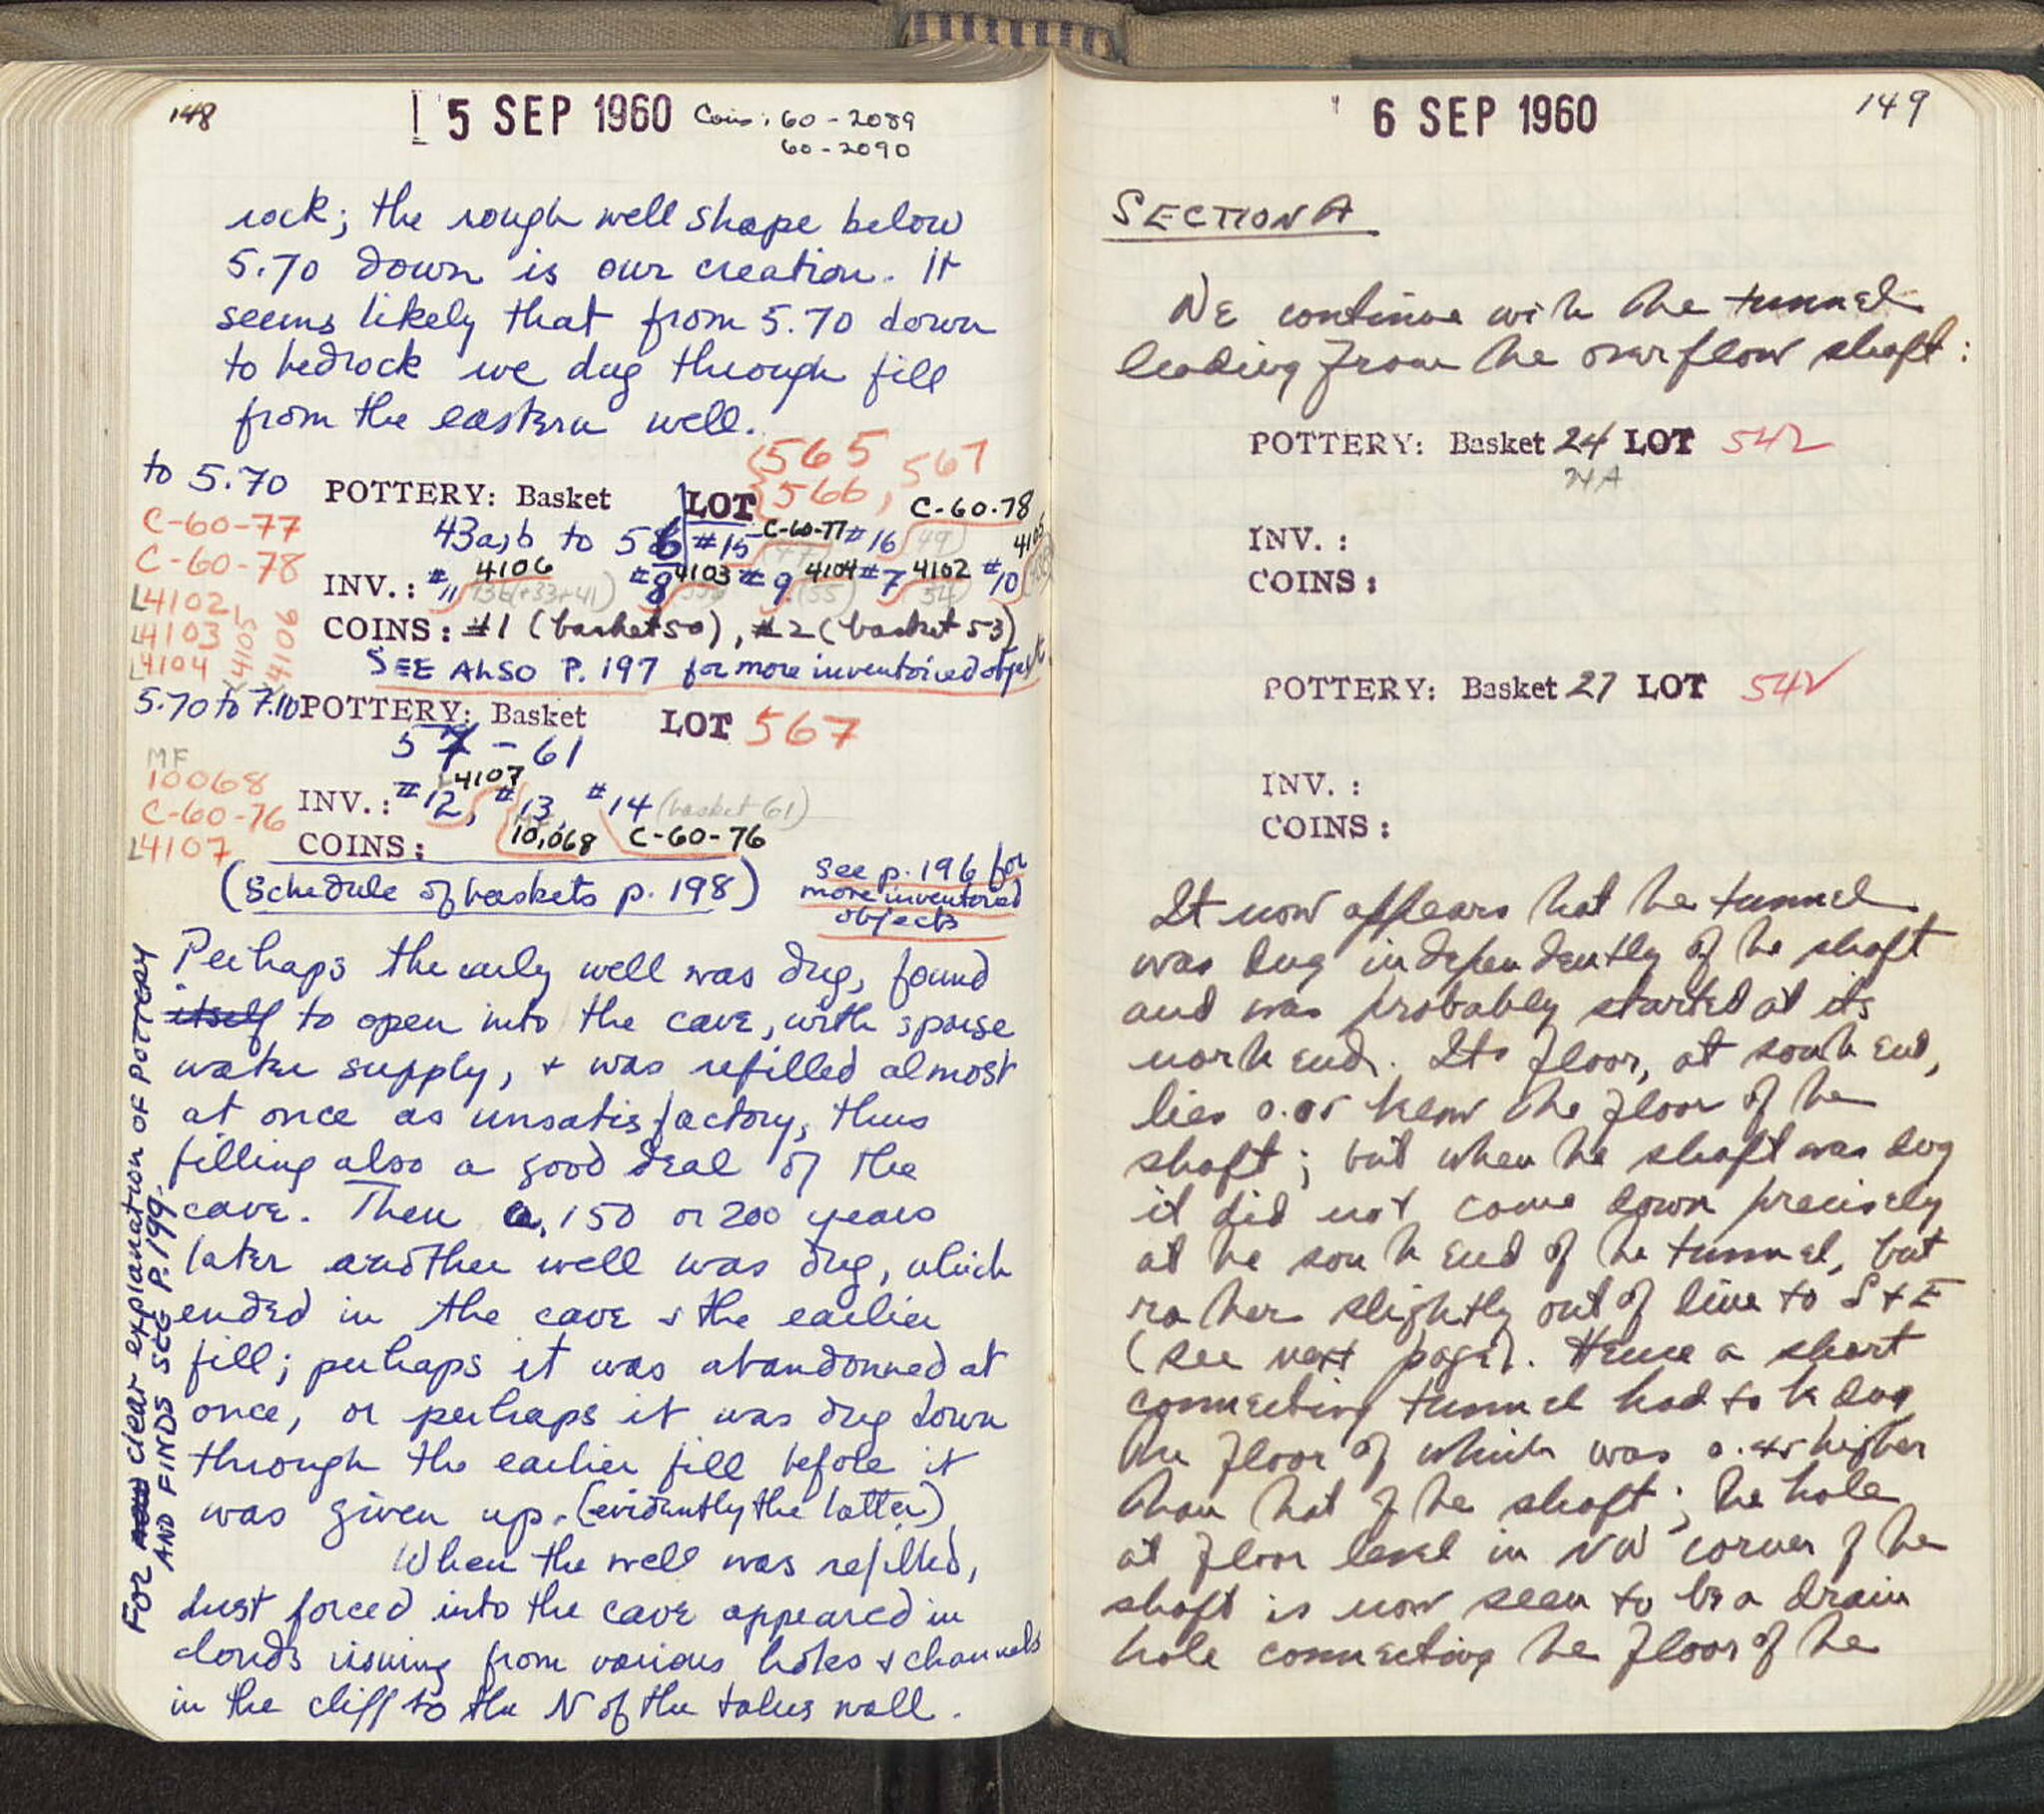 148
5 SEP 1960 Coins: 60-2089
60-2090
rock; the rough well shape below
5.70 down is our creation. It
seems likely that from 5.70 down
to bedrock we dug through fill
from the eastern well.
to 5.70 POTTERY: Basket LOT 565 567
566,
43a,b to 56 #15 C-60-77 #16 C-60-78
C-60-77
C-60-78
INV.: #11 4106 (+33+41) #8 4103 #9 4104 (55) #7 4102 54 #10 4105
L4102
L4103
L4104
4105
4106
COINS: #1 (basket 50), #2 (basket 53)
SEE ALSO P. 197 for more inventoried objects
5.70 to 7.10 POTTERY: Basket LOT 567
57 - 61
MF
10068
C-60-76
L4107
INV.: #12, L4107 #13, 10,068 #14 (basket 61) C-60-76
COINS:
(Schedule of baskets p. 198)
see p. 196 for
more inventoried
objects
Perhaps the early well was dug, found
itself to open into the cave, with sparse
water supply, + was refilled almost
at once as unsatisfactory, thus
filling also a good deal of the
cave. Then 150 or 200 years
later another well was dug, which
ended in the cave & the earlier
fill; perhaps it was abandonned at
once, or perhaps it was dug down
through the earlier fill before it
was given up. (evidently the latter)
When the well was refilled,
dust forced into the cave appeared in
clouds issuing from various holes & channels
in the cliff to the N of the talus wall.
FOR clear explanation OF POTTERY
AND FINDS SEE P. 199.
6 SEP 1960
149
SECTION A
We continue with the tunnel
leading from the overflow shaft:
POTTERY: Basket 24 LOT 542
24A
INV.:
COINS:
POTTERY: Basket 27 LOT 542
INV.:
COINS:
It now appears that the tunnel
was dug independently of the shaft
and was probably started at its
north end. Its floor, at south end,
lies 0.05 below the floor of the
shaft; but when the shaft was dug
it did not come down precisely
at the south end of the tunnel, but
rather slightly out of line to S + E
(see next page). Hence a short
connecting tunnel had to be dug
the floor of which was 0.45 higher
than that of the shaft; the hole
at floor level in NW corner of the
shaft is now seen to be a drain
hole connecting the floor of the